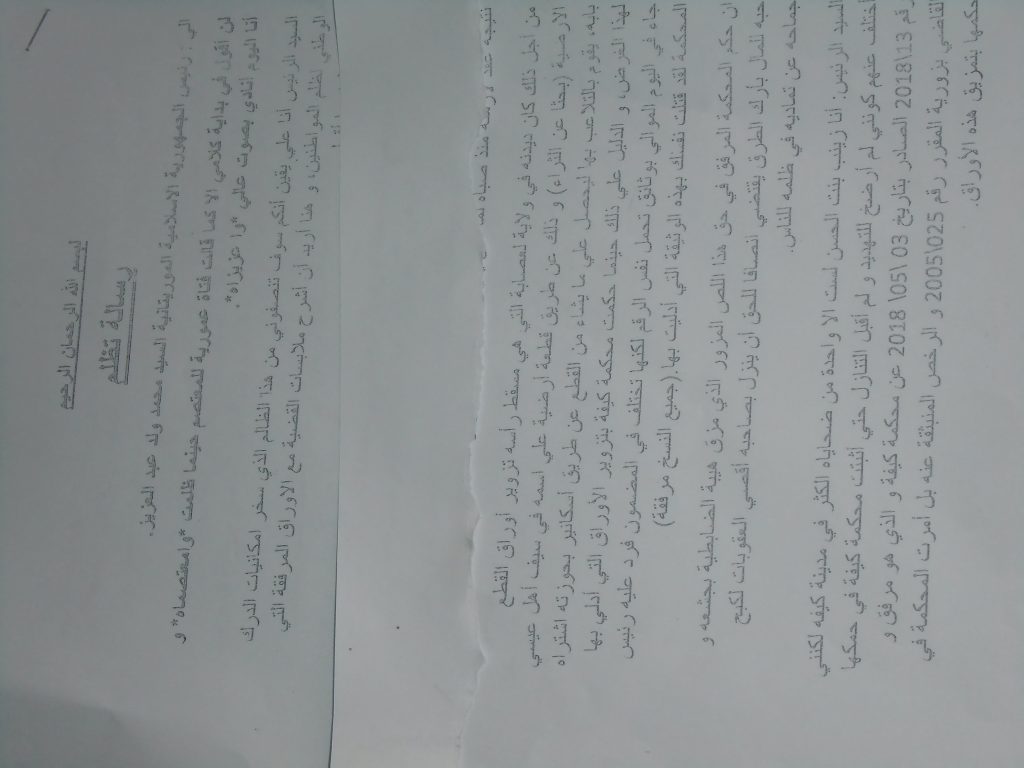 بسم الله الرحمان الرحيم
رسالة تظلم
الي : رئيس الجمهورية الاسلامية الموريتانية السيد محمد ولد عبد العزيز.
لن اقول في بداية كلامي الا كما قالت فتاة عمورية للمعتصم حينما ظلمت *وامعتصماه* و
أنا اليوم أنادي بصوت عالي *وا عزيزاه*.
السيد الرئيس أنا علي يقين أنكم سوف تنصفوني من هذا الظالم الذي سخر امكانيات الدرك
الوطني لظلم المواطنين، و هنا أريد ان أشرح ملابسات القضية مع الاوراق المرفقة التي
منذ صباه
من أجل ذلك كان ديدنه في ولاية لعصابة التي هي مسقط رأسه تزوير أوراق القطع
الارضية (بحثا عن الثراء) و ذلك عن طريق قطعة أرضية علي اسمه في سيف أهل عيسي
بابه، يقوم بالتلاعب بها ليحصل علي ما يشاء من القطع عن طريق أسكانير بحوزته اشتراه
لهذا الغرض، و الدليل علي ذلك حينما حكمت محكمة كيفة بتزوير الأوراق التي أدلي بها
جاء في اليوم الموالي بوثائق تحمل نفس الرقم لكنها تختلف في المضمون فرد عليه رئيس
المحكمة لقد قتلت نفسك بهذه الوثيقة التي أدليت بها.(جميع النسخ مرفقة)
ان حكم المحكمة المرفق في حق هذا اللص المزور الذي مزق هيبة الضابطية بجشعه و
حبه للمال بأرك الطرق يقتضي انصافا للحق أن ينزل بصاحبه أقصي العقوبات لكبح
جماحه عن تماديه في ظلمه للناس.
السيد الرئيس. أنا زينب بنت الحسن لست الا واحدة من ضحاياه الكثر في مدينة كيفه لكنني
أختلف عنهم كونني لم أرضخ للتهديد و لم أقبل التنازل حتي أثبتت محكمة كيفة في حمكها
رقم 13\2018 الصادر بتاريخ 03 \05\ 2018 عن محكمة كيفة و الذي هو مرفق و
القاضي بزورية المقرر رقم 025\2005 و الرخص المنبثقة عنه بل أمرت المحكمة في
حكمها بتمزيق هذه الأوراق.